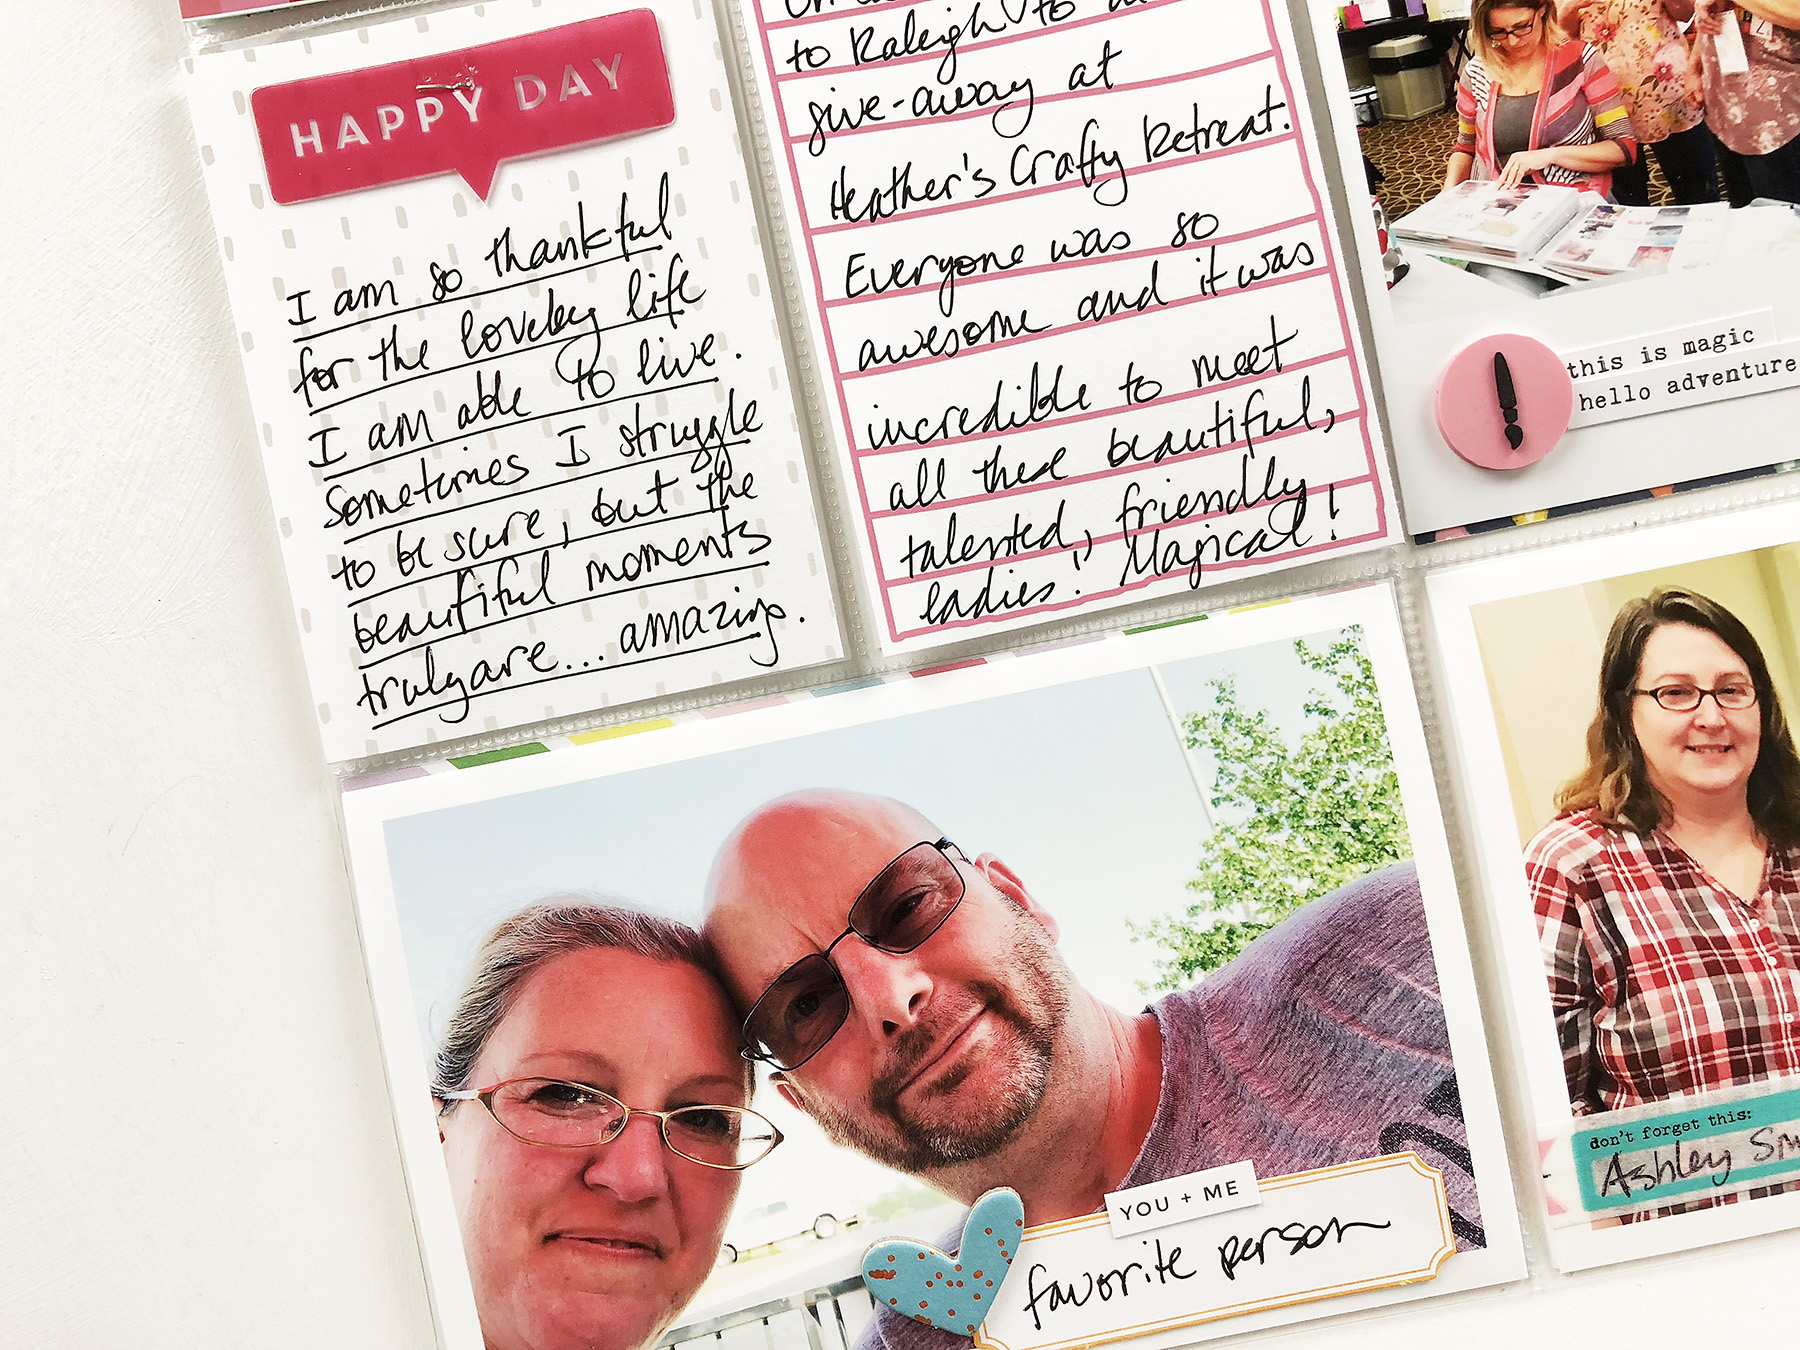 HAPPY DAY
I am so thankful
for the lovely life
I am able to live.
Sometimes I struggle
to be sure, but the
beautiful moments
truly are... amazing.
to Raleigh to
give-away at
Heather's Crafty Retreat.
Everyone was so
awesome and it was
incredible to meet
all these beautiful,
talented, friendly
ladies! Magical!
this is magic
hello adventure
YOU + ME
favorite person
don't forget this:
Ashley